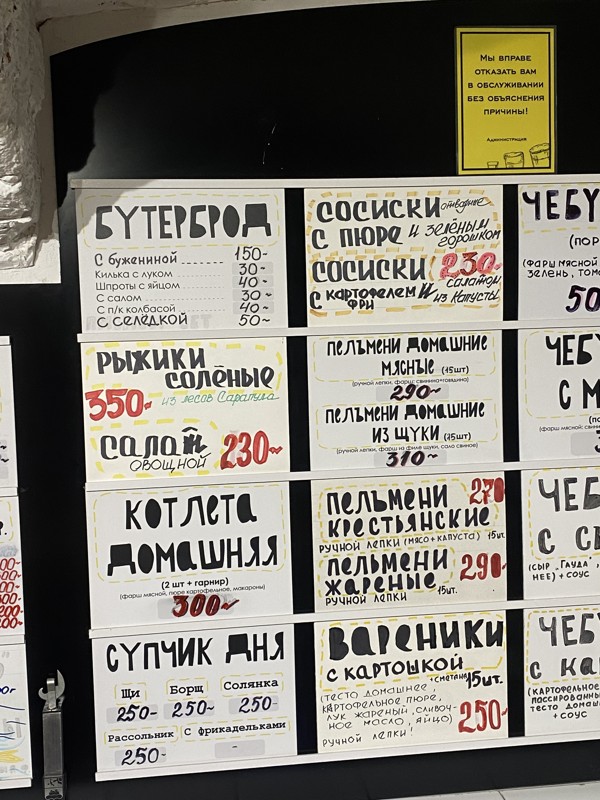 Мы вправе
отказать вам
в обслуживании
без объяснения
причины!
Администрация
БУТЕРБРОД
С бужениной ........ 150-
Килька с луком ........ 30-
Шпроты с яйцом ........ 40-
С салом ........ 30-
С п/к колбасой ........ 40-
С СЕЛЕДКОЙ 50~
РЫЖИКИ
СОЛЁНЫЕ
350- из лесов Сарапула
САЛАТ
ОВОЩНОЙ 230~
КОТЛЕТА
ДОМАШНЯЯ
(2 шт + гарнир)
(фарш мясной, пюре картофельное, макароны)
300~
СУПЧИК ДНЯ
Щи Борщ Солянка
250- 250~ 250-
Рассольник С фрикадельками
250- -
СОСИСКИ отварные
С ПЮРЕ И зелёным
горошком
СОСИСКИ 230-
С КАРТОФЕЛЕМ И салатом
ФРИ из капусты
ПЕЛЬМЕНИ ДОМАШНИЕ
МЯСНЫЕ (15шт)
(ручной лепки, фарш: свинина+говядина)
290~
ПЕЛЬМЕНИ ДОМАШНИЕ
ИЗ ЩУКИ (15шт)
(ручной лепки, фарш из филе щуки, сало свиное)
310~
ПЕЛЬМЕНИ 270
КРЕСТЬЯНСКИЕ
РУЧНОЙ ЛЕПКИ (МЯСО+КАПУСТА) 15шт.
ПЕЛЬМЕНИ
ЖАРЕНЫЕ 290-
РУЧНОЙ ЛЕПКИ 15шт.
ВАРЕНИКИ
С КАРТОШКОЙ
+СМЕТАНА 15шт.
ТЕСТО ДОМАШНЕЕ,
КАРТОФЕЛЬНОЕ ПЮРЕ,
ЛУК ЖАРЕНЫЙ, СЛИВОЧ-
НОЕ МАСЛО, ЯЙЦО)
РУЧНОЙ ЛЕПКИ! 250-
ЧЕБУ
(ПОР
(ФАРШ МЯСНОЙ
ЗЕЛЕНЬ, ТОМ
50
ЧЕБУ
С М
(фарш мясной: свин
ЧЕБ
С С
(СЫР "ГАУДА",
НЕЕ) + СОУС
ЧЕБУ
С КА
(КАРТОФЕЛЬНОЕ
ПАССИРОВАНН
ТЕСТО ДОМАШ
+ СОУС